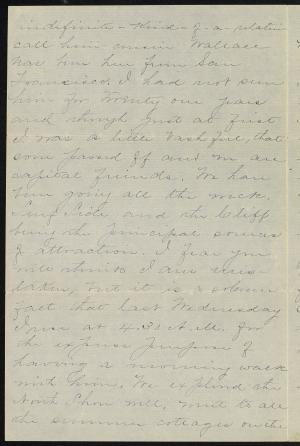 indefinite-kind-of-a-relative
call him-cousin Wallace
has been here from San
Francisco. I had not seen
him for twenty one years
and though just at first
I was a little bashful, that
soon passed off and we are
capital friends. We have
been going all the week.
Surf Side, and the Cliff
being the principal sources
of attraction. I fear you
will think I am mis-
taken, but it is a solemn
fact that last Wednesday
I rose at 4.30 A.M. for
the express purpose of
having a morning walk
with him. We explored the
North Shore well, went to all
the summer cottages on the